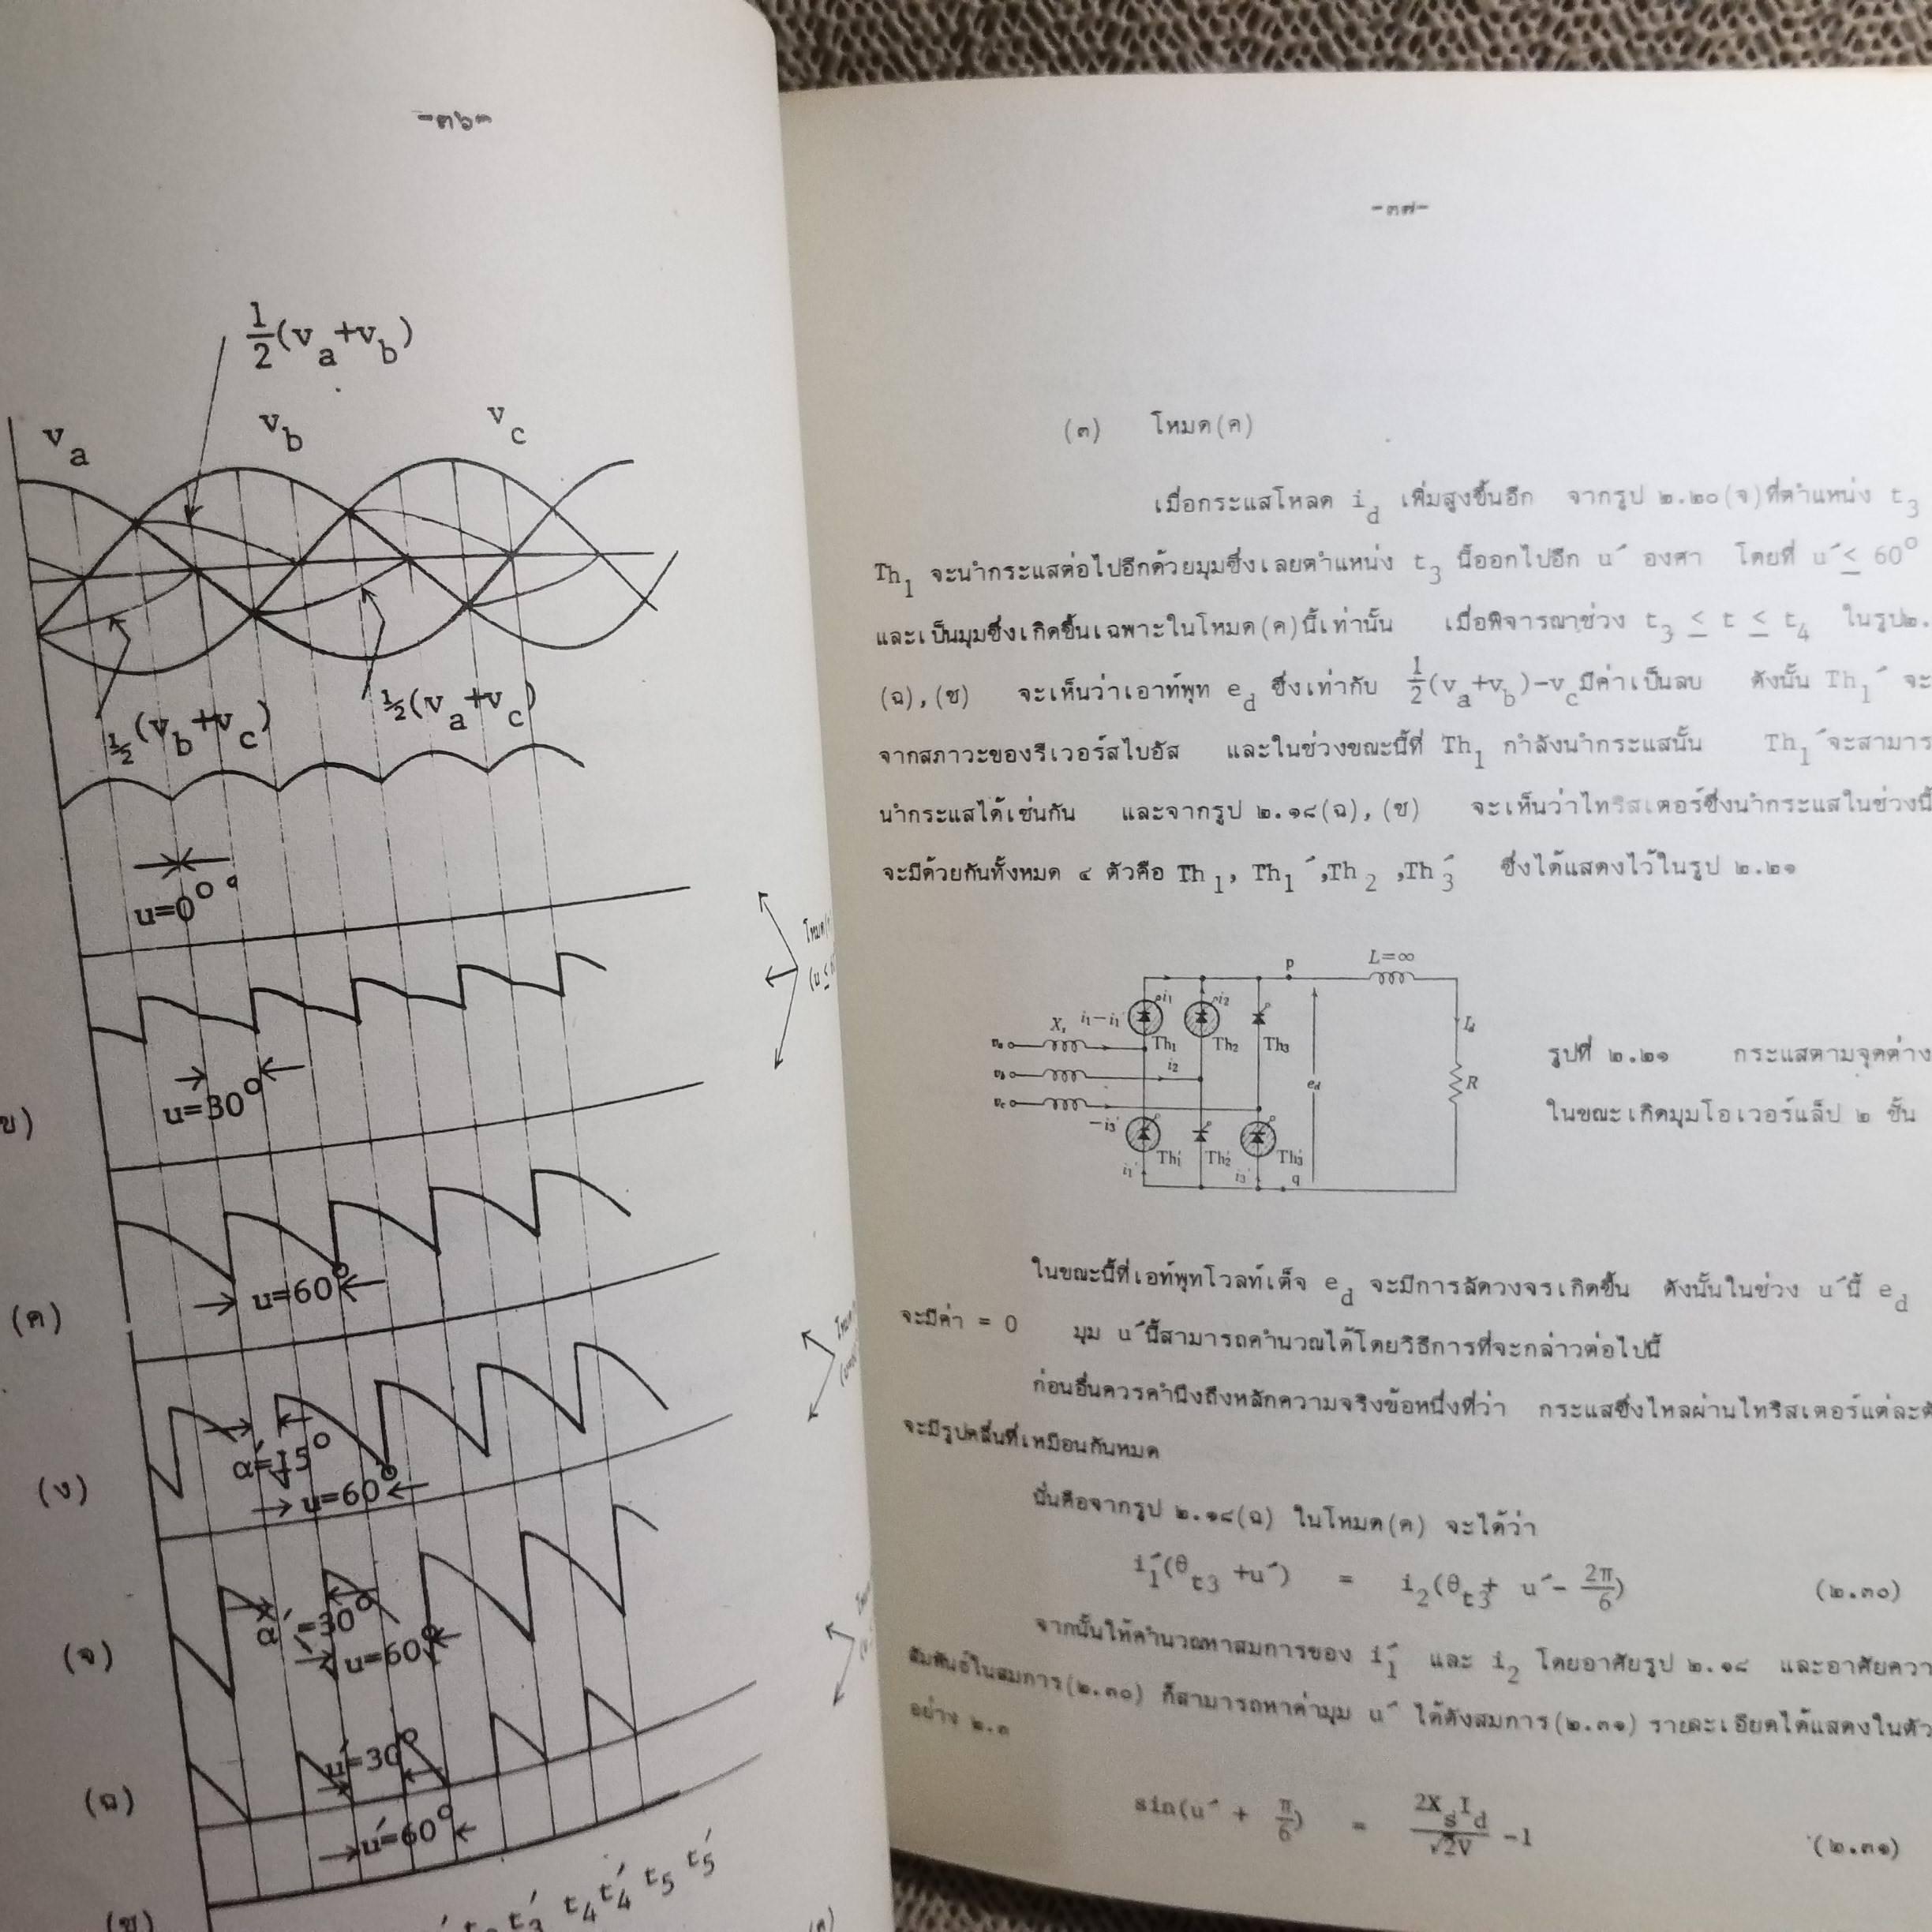 -๓๖-
½(v_a+v_b)
v_a v_b v_c
½(v_b+v_c) ½(v_a+v_c)
u=0°
u=30°
u=60°
(ค)
α'=15°
u=60°
(ง)
α'=30°
u=60°
(จ)
u'=30°
(ฉ)
u'=60°
t'_3 t_4 t'_4 t_5 t'_5
(ช)
-๓๗-
(๓) โหมด(ค)
เมื่อกระแสโหลด i_d เพิ่มสูงขึ้นอีก จากรูป ๒.๒๐(จ)ที่ตำแหน่ง t_3
Th_1 จะนำกระแสต่อไปอีกด้วยมุมซึ่งเลยตำแหน่ง t_3 นี้ออกไปอีก u' องศา โดยที่ u' ≤ 60°
และเป็นมุมซึ่งเกิดขึ้นเฉพาะในโหมด(ค)นี้เท่านั้น เมื่อพิจารณาช่วง t_3 ≤ t ≤ t_4 ในรูป๒.
(ฉ),(ช) จะเห็นว่าเอาท์พุท e_d ซึ่งเท่ากับ ½(v_a+v_b)-v_c มีค่าเป็นลบ ดังนั้น Th_1' จะ
จากสภาวะของรีเวอร์สไบอัส และในช่วงขณะนี้ที่ Th_1 กำลังนำกระแสนั้น Th_1' จะสามาร
นำกระแสได้เช่นกัน และจากรูป ๒.๑๘(ฉ),(ช) จะเห็นว่าไทริสเตอร์ซึ่งนำกระแสในช่วงนี้
จะมีด้วยกันทั้งหมด ๔ ตัวคือ Th_1, Th_1',Th_2 ,Th_3' ซึ่งได้แสดงไว้ในรูป ๒.๒๑
p L=∞
i_1-i_1' i_1 i_2
X_s Th_1 Th_2 Th_3 I_d
v_a
i_2
v_b e_d R
v_c
-i_3'
Th_1' Th_2' Th_3'
i_1' i_3' q
รูปที่ ๒.๒๑ กระแสตามจุดต่าง
ในขณะเกิดมุมโอเวอร์แล็ป ๒ ชั้น
ในขณะนี้ที่เอท์พุทโวลท์เต็จ e_d จะมีการลัดวงจรเกิดขึ้น ดังนั้นในช่วง u' นี้ e_d
จะมีค่า = 0 มุม u' นี้สามารถคำนวณได้โดยวิธีการที่จะกล่าวต่อไปนี้
ก่อนอื่นควรคำนึงถึงหลักความจริงข้อหนึ่งที่ว่า กระแสซึ่งไหลผ่านไทริสเตอร์แต่ละตั
จะมีรูปคลื่นที่เหมือนกันหมด
นั่นคือจากรูป ๒.๑๘(ฉ) ในโหมด(ค) จะได้ว่า
i_1'(θ_t3 +u') = i_2(θ_t3+ u'- 2π/6) (๒.๓๐)
จากนั้นให้คำนวณหาสมการของ i_1' และ i_2 โดยอาศัยรูป ๒.๑๘ และอาศัยควา
สัมพันธ์ในสมการ(๒.๓๐) ก็สามารถหาค่ามุม u' ได้ดังสมการ(๒.๓๑) รายละเอียดได้แสดงในตัว
อย่าง ๒.๓
sin(u' + π/6) = 2X_sI_d/√2V -1 (๒.๓๑)